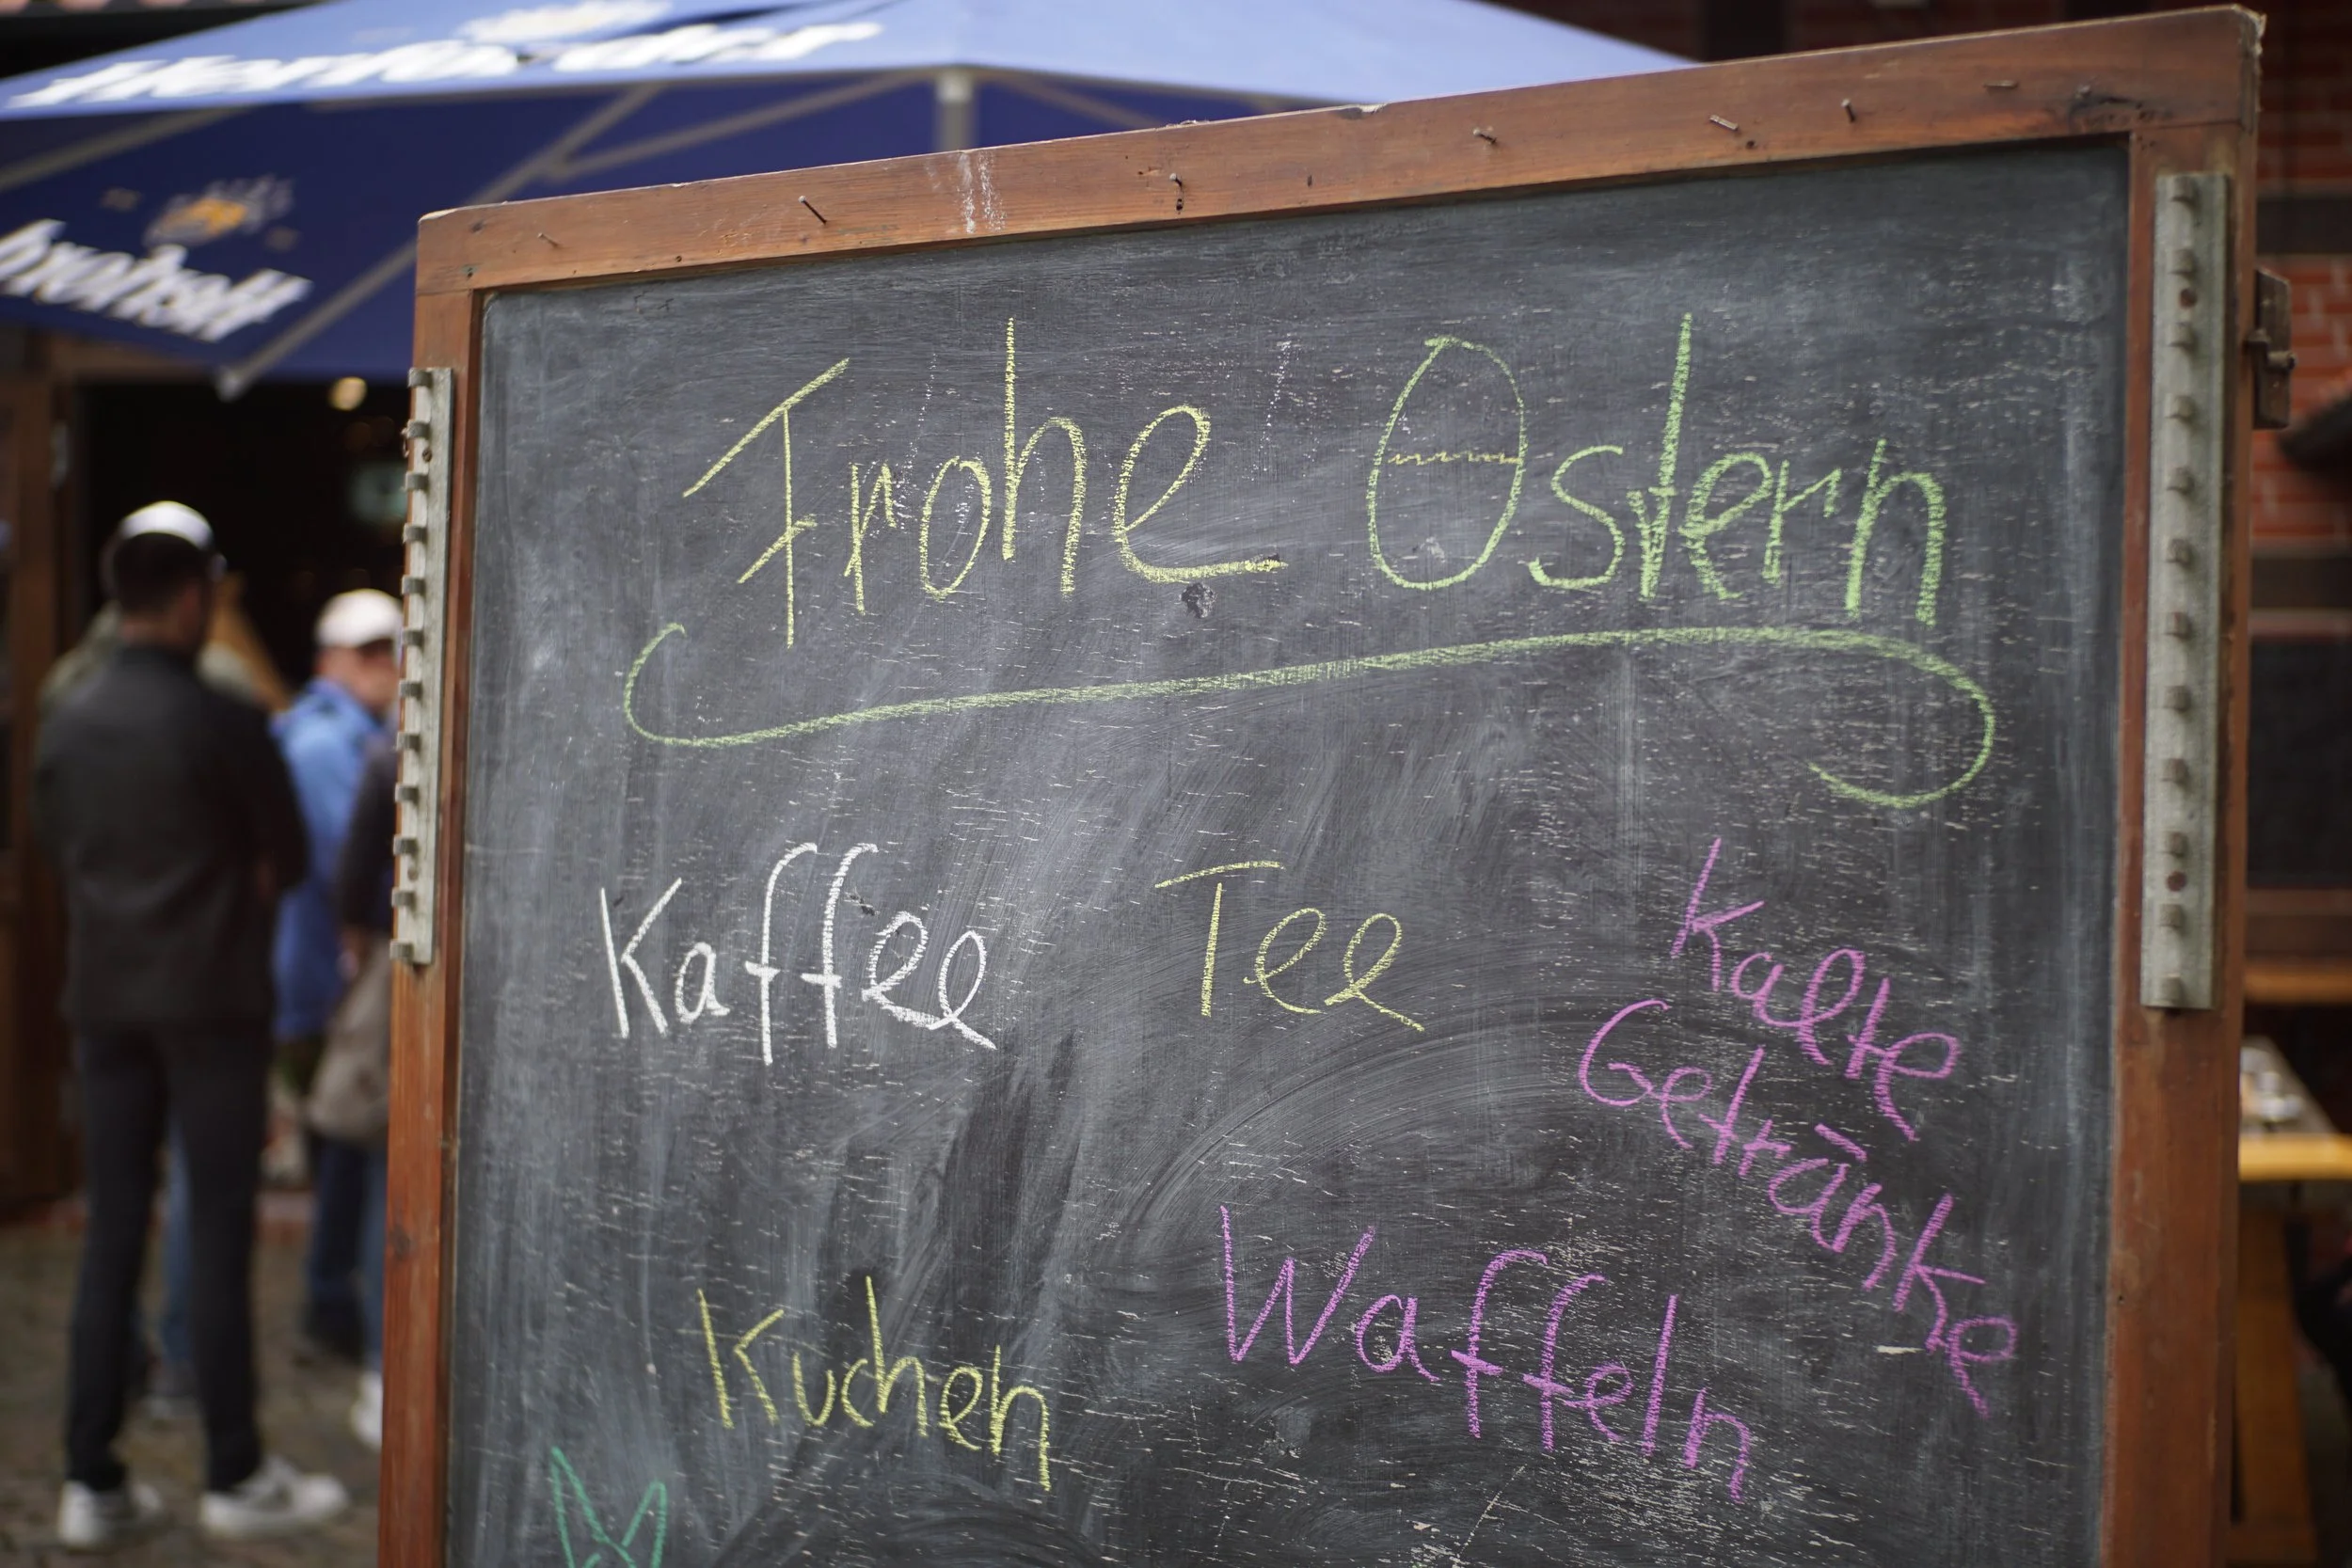 Frohe Ostern
Kaffee Tee Kalte
Getränke
Kuchen Waffeln